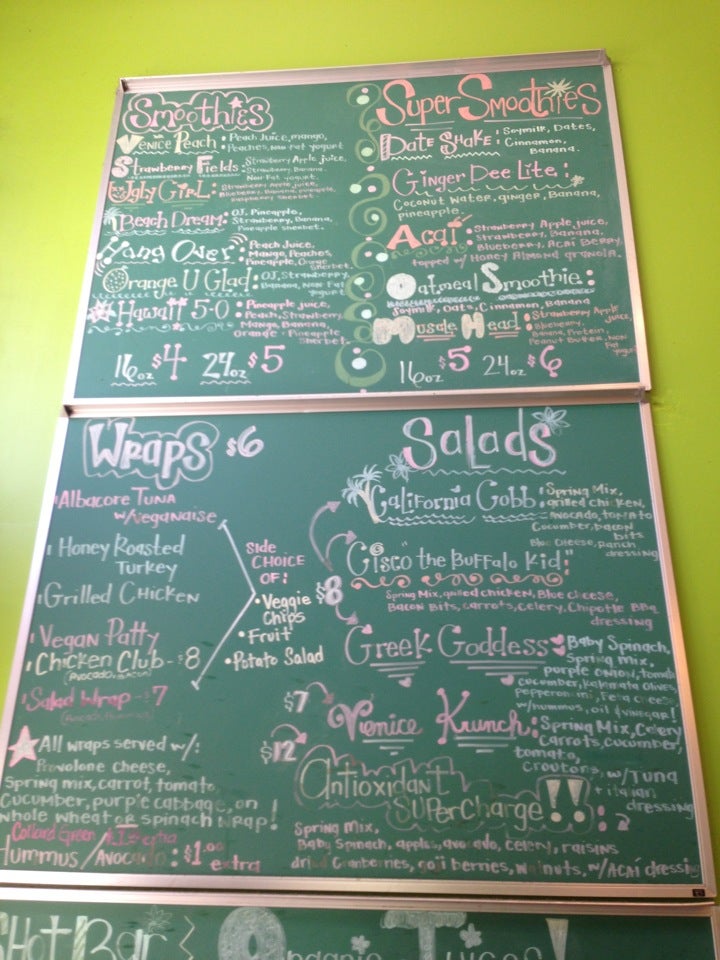 Smoothies
Venice Peach: Peach Juice, mango,
Peaches, Non Fat yogurt
Strawberry Fields: Strawberry Apple Juice,
Strawberry, Banana,
Non Fat yogurt.
Ugly Girl: Strawberry Apple Juice,
Blueberry, Banana, pineapple,
Raspberry Sherbet.
Beach Dream: OJ, Pineapple,
Strawberry, Banana,
Pineapple sherbet.
Hang Over: Peach Juice,
Mango, Peaches,
Pineapple, Orange
Sherbet.
Orange U Glad: OJ, Strawberry,
Banana, Non Fat
Yogurt
Hawaii 5-0: Pineapple juice,
Peach, Strawberry,
Mango, Banana,
Orange & Pineapple
Sherbet.
16oz $4 24oz $5
Super Smoothies
Date Shake: Soymilk, Dates,
Cinnamon,
Banana.
Ginger Dee Lite:
Coconut Water, ginger, Banana,
pineapple.
Acai: Strawberry Apple juice,
Strawberry, Banana,
Blueberry, Acai Berry,
topped w/ Honey Almond granola.
Oatmeal Smoothie:
Soymilk, Oats, Cinnamon, Banana
Muscle Head: Strawberry Apple
Juice,
Blueberry,
Banana, Protein,
Peanut Butter, Non
Fat
yogurt
16oz $5 24oz $6
Wraps $6
Albacore Tuna
w/Veganaise
Honey Roasted
Turkey
Grilled Chicken
Vegan Patty
Chicken Club - $8
Salad Wrap - $7
Side
Choice
Of:
• Veggie
Chips
• Fruit
• Potato Salad
All wraps served w/:
Provolone Cheese,
Spring mix, carrot, tomato,
Cucumber, purple cabbage, on
whole wheat or spinach wrap!
Collard Green $1.75 extra
Hummus / Avocado: $1.00
extra
Salads
California Cobb: Spring Mix,
grilled chicken,
avocado, tomato
Cucumber, bacon
bits
Blue Cheese, ranch
dressing
Cisco "the Buffalo Kid":
$8
Spring Mix, grilled chicken, Blue cheese,
Bacon Bits, carrots, celery, Chipotle BBQ
dressing
Greek Goddess: Baby Spinach,
Spring mix,
purple onion, tomato
cucumber, Kalamata olives,
pepperoncini, Feta cheese
w/hummus, oil & vinegar!
$7
Venice Krunch: Spring Mix, Celery
Carrots, cucumber,
tomato,
croutons, w/Tuna
+ italian
dressing
$12
Antioxidant
Supercharge!!:
Spring Mix,
Baby Spinach, apples, avocado, celery, raisins
dried cranberries, goji berries, walnuts, w/ACAÍ dressing
Shot Bar
Organic Juices!